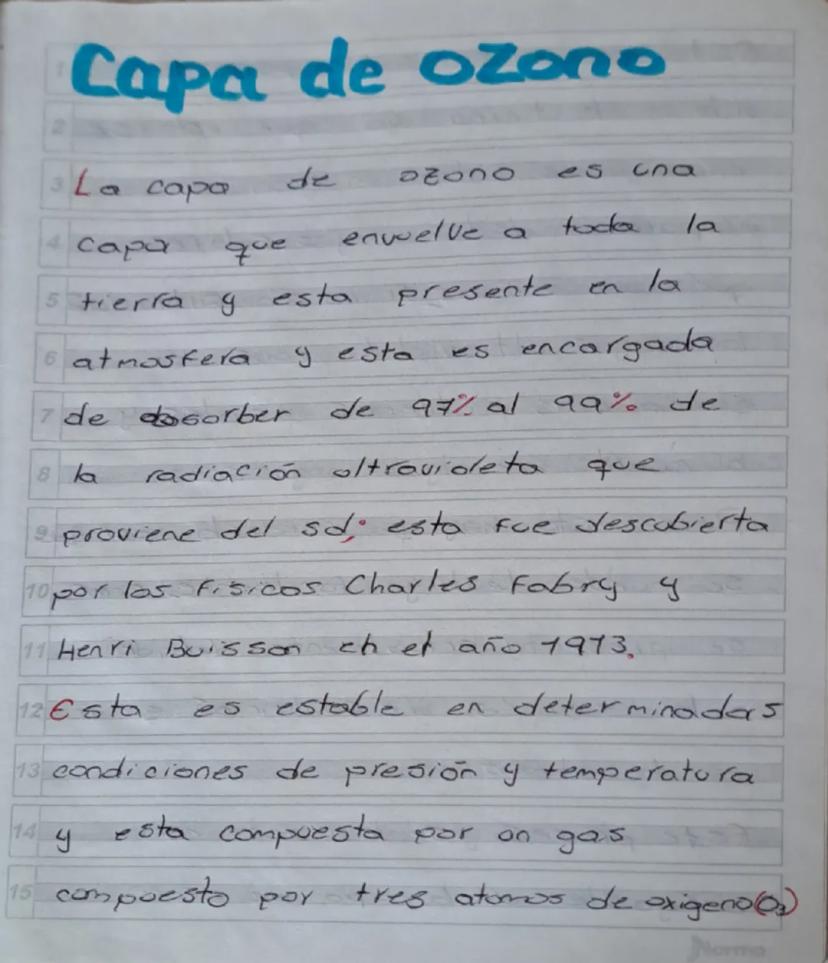 Capa de ozono
La capa de ozono es una
capa que envuelve a toda la
tierra y esta presente en la
atmosfera y esta es encargada
de absorber de 97% al 99% de
la radiación ultravioleta que
proviene del sol; esta fue descubierta
por los fisicos Charles Fabry y
Henri Buisson en el año 1913.
Esta es estable en determinadas
condiciones de presión y temperatura
y esta compuesta por un gas
compuesto por tres atomos de oxigeno(O3)
Norma